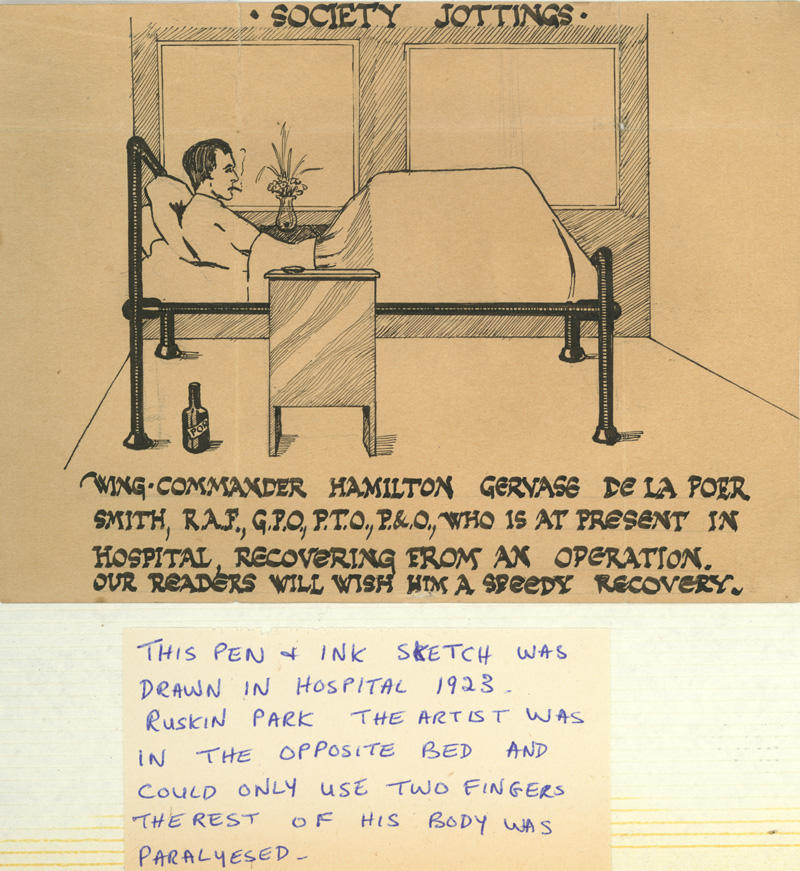 · SOCIETY JOTTINGS ·
POP
WING-COMMANDER HAMILTON GERVASE DE LA POER
SMITH, R.A.F., G.P.O., P.T.O., P.&O., WHO IS AT PRESENT IN
HOSPITAL, RECOVERING FROM AN OPERATION.
OUR READERS WILL WISH HIM A SPEEDY RECOVERY.
THIS PEN & INK SKETCH WAS
DRAWN IN HOSPITAL 1923.
RUSKIN PARK THE ARTIST WAS
IN THE OPPOSITE BED AND
COULD ONLY USE TWO FINGERS
THE REST OF HIS BODY WAS
PARALYESED-